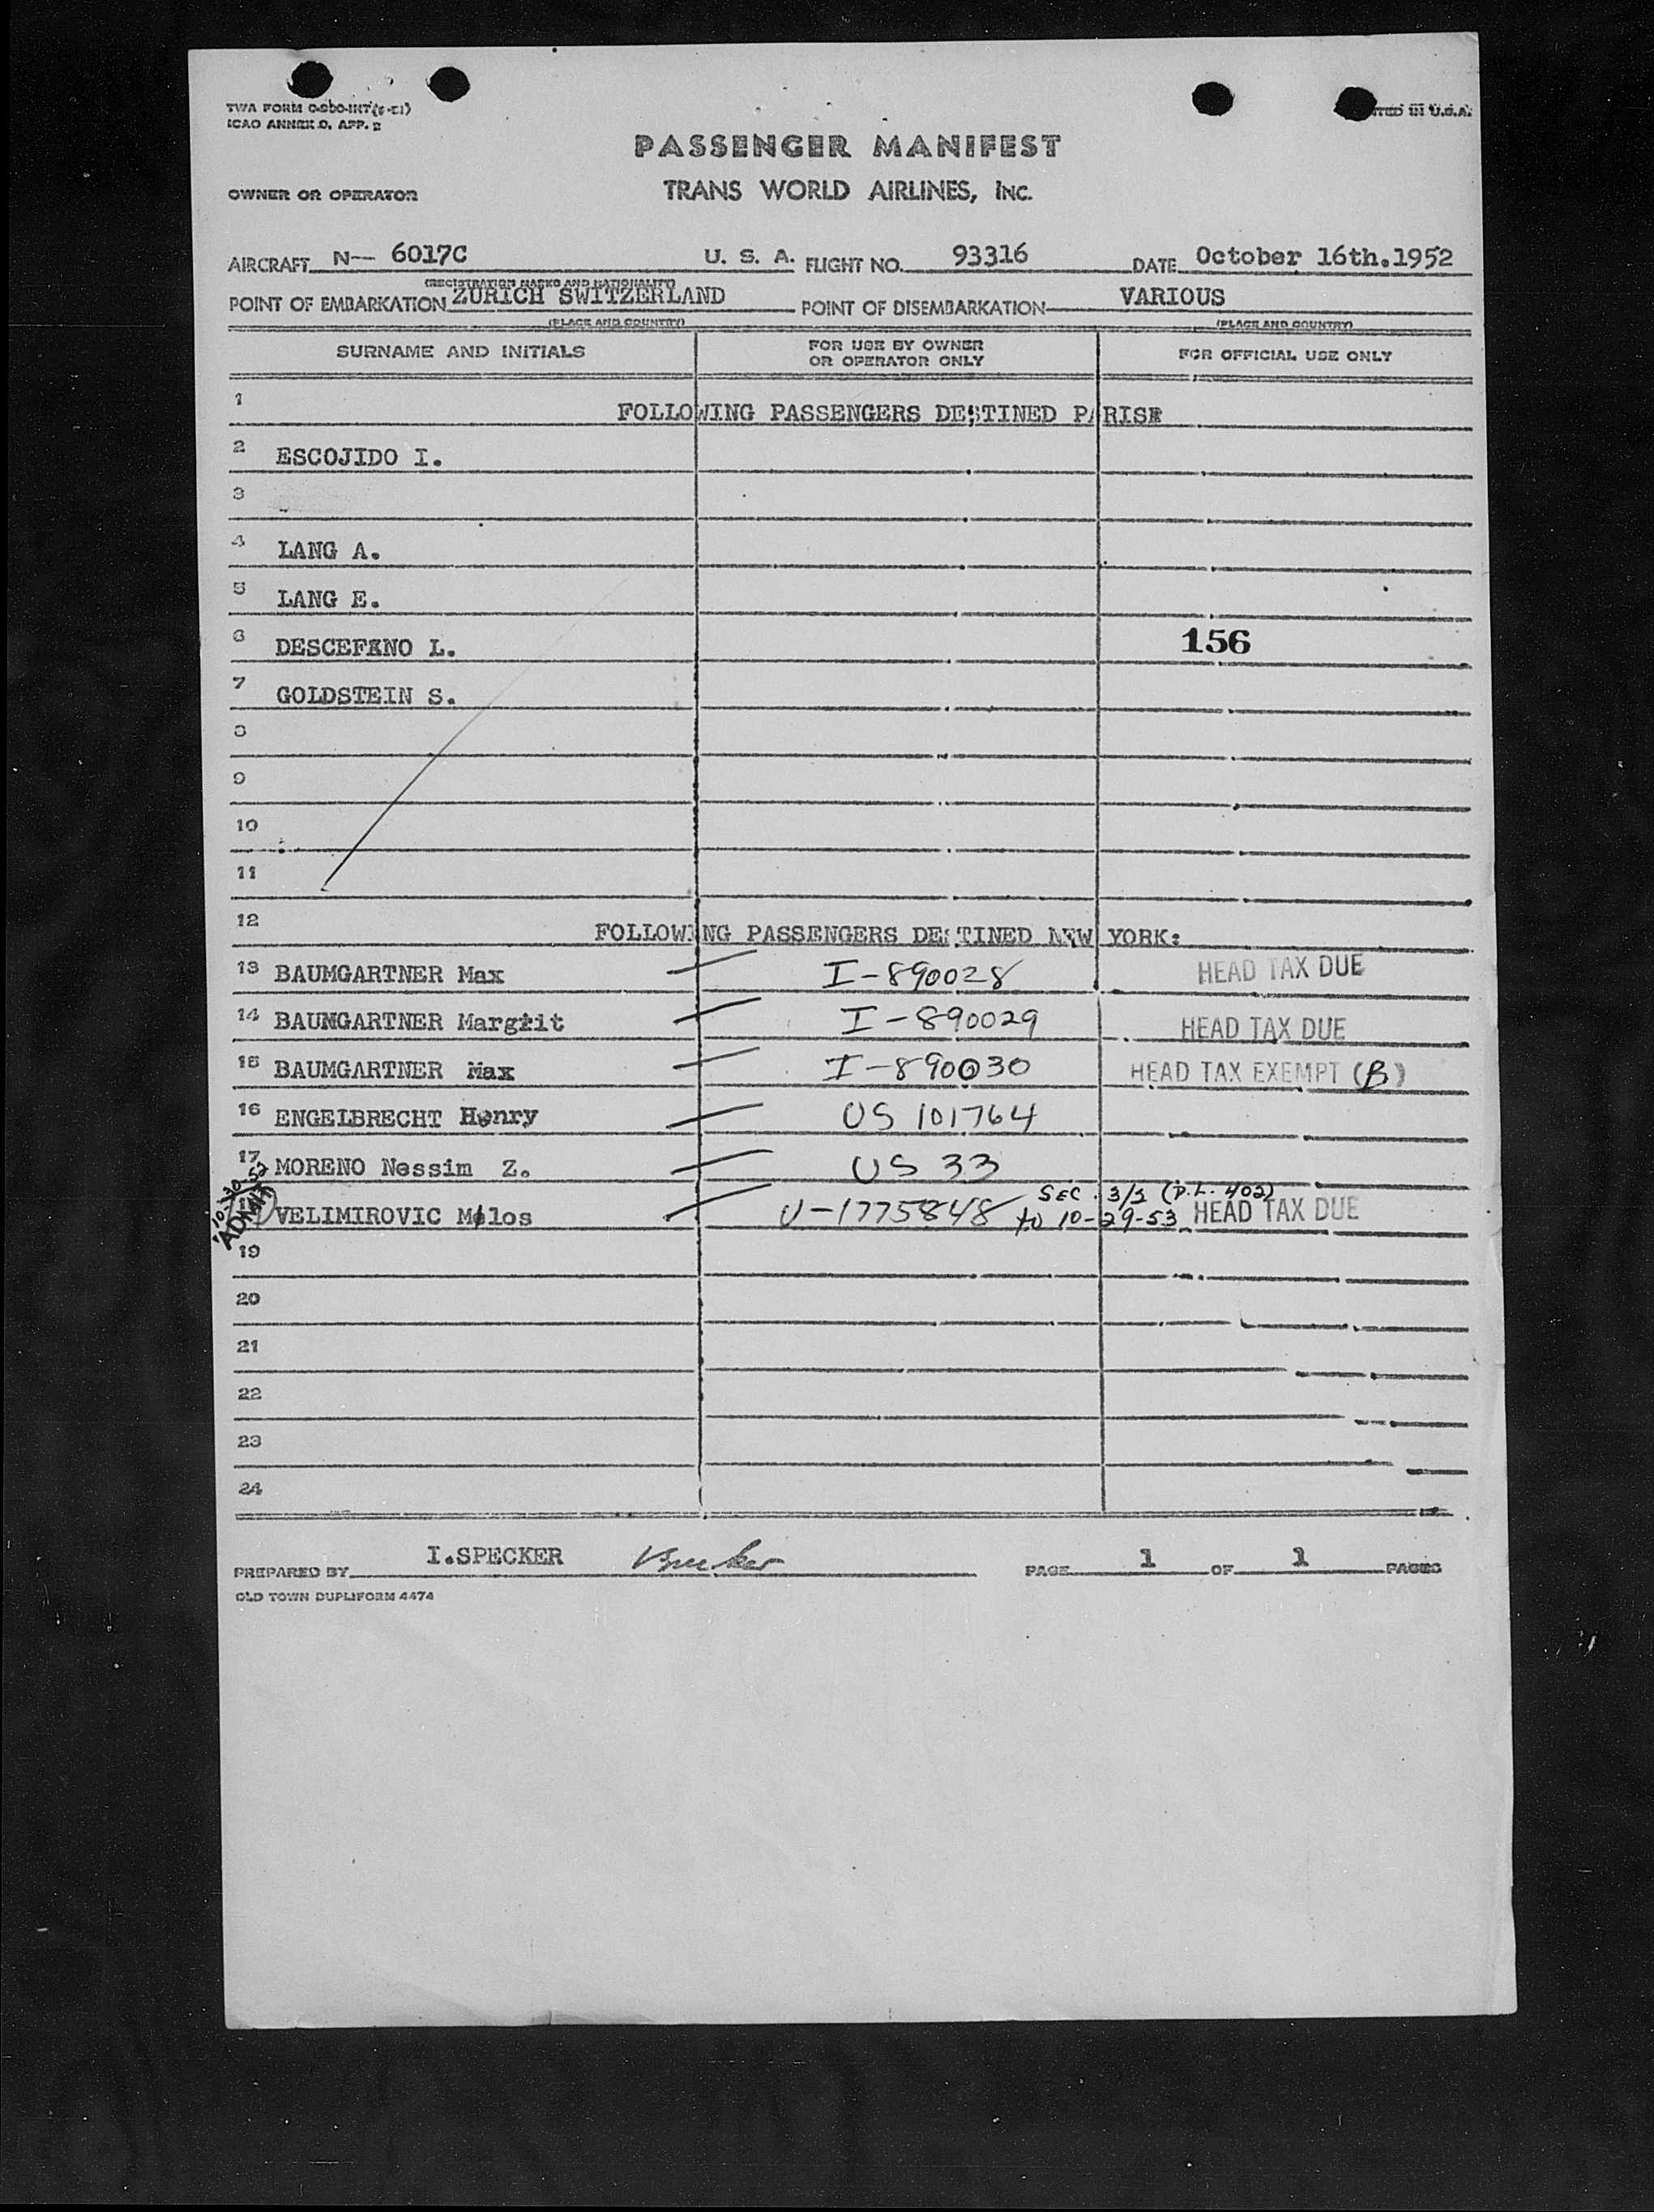 TWA FORM
ICAO ANNEX 9, APP. 2
PRINTED IN U.S.A.
PASSENGER MANIFEST
OWNER OR OPERATOR TRANS WORLD AIRLINES, INC.
AIRCRAFT N-- 6017C U. S. A. FLIGHT NO. 93316 DATE October 16th.1952
(REGISTRATION MARKS AND NATIONALITY)
POINT OF EMBARKATION ZURICH SWITZERLAND POINT OF DISEMBARKATION VARIOUS
(PLACE AND COUNTRY) (PLACE AND COUNTRY)
SURNAME AND INITIALS FOR USE BY OWNER OR OPERATOR ONLY FOR OFFICIAL USE ONLY
1 FOLLOWING PASSENGERS DESTINED PARIS
2 ESCOJIDO I.
3
4 LANG A.
5 LANG E.
6 DESCEFANO L. 156
7 GOLDSTEIN S.
8
9
10
11
12 FOLLOWING PASSENGERS DESTINED NEW YORK:
13 BAUMGARTNER Max I-890028 HEAD TAX DUE
14 BAUMGARTNER Margrit I-890029 HEAD TAX DUE
15 BAUMGARTNER Max I-890030 HEAD TAX EXEMPT (B)
16 ENGELBRECHT Henry US 101764
17 MORENO Nessim Z. US 33
10-30-52 ADMIT SEC. 3/3 (P.L. 402)
18 VELIMIROVIC Milos V-1775848 to 10-29-53 HEAD TAX DUE
19
20
21
22
23
24
PREPARED BY I.SPECKER PAGE 1 OF 1 PAGES
OLD TOWN DUPLIFORM 4474